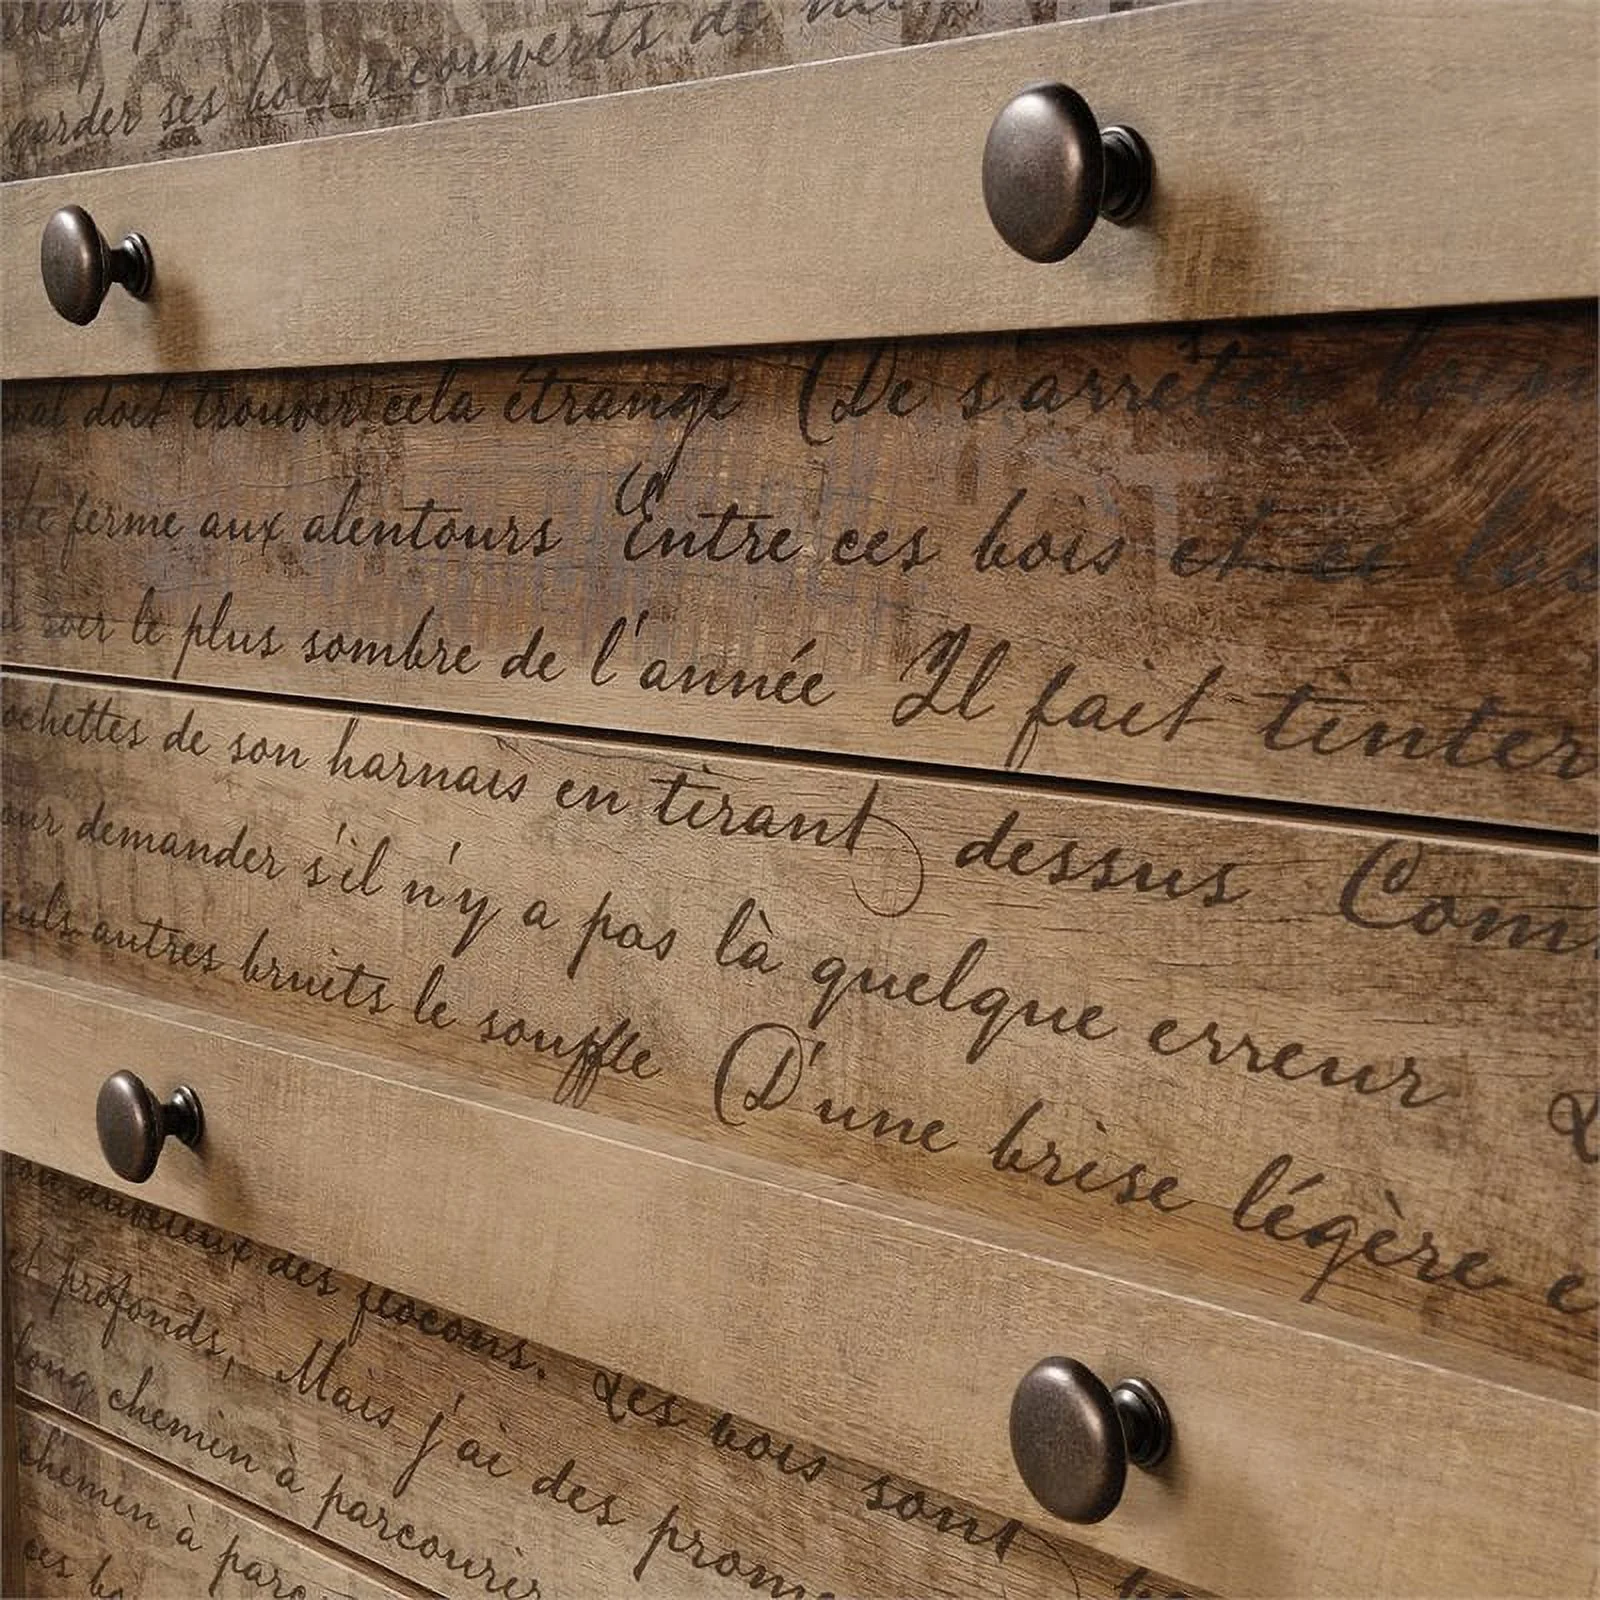 garder ses bois recouverts de
doit trouver cela étrange De s'arrêter
ferme aux alentours Entre ces bois et ce lac
soir le plus sombre de l'année Il fait tinter
ochettes de son harnais en tirant dessus Com
our demander s'il n'y a pas là quelque erreur
autres bruits le souffle D'une brise légère e
duveteux des flocons. Les bois sont
et profonds, Mais j'ai des prom
long chemin à parcourir
chemin à parc
ces bo